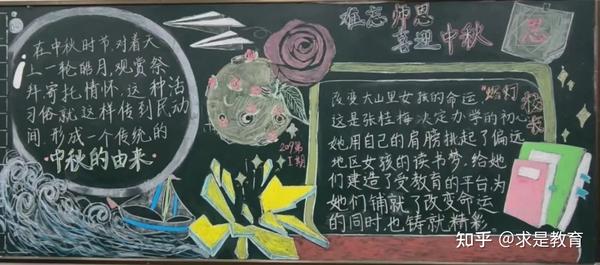 难忘师恩
喜迎中秋
思
在中秋时节,对着天
上一轮皓月,观赏祭
拜,寄托情怀,这种活
习俗就这样传到民动
间,形成一个传统的
"中秋的由来"
209第
1期
改变大山里女孩的命运,"燃灯校长"
这是张桂梅决定办学的初心
她用自己的肩膀挑起了偏远
地区女孩的读书梦,给她
们建造了受教育的平台,为
她们铺就了改变命运
的同时,也铸就精彩
知乎 @求是教育